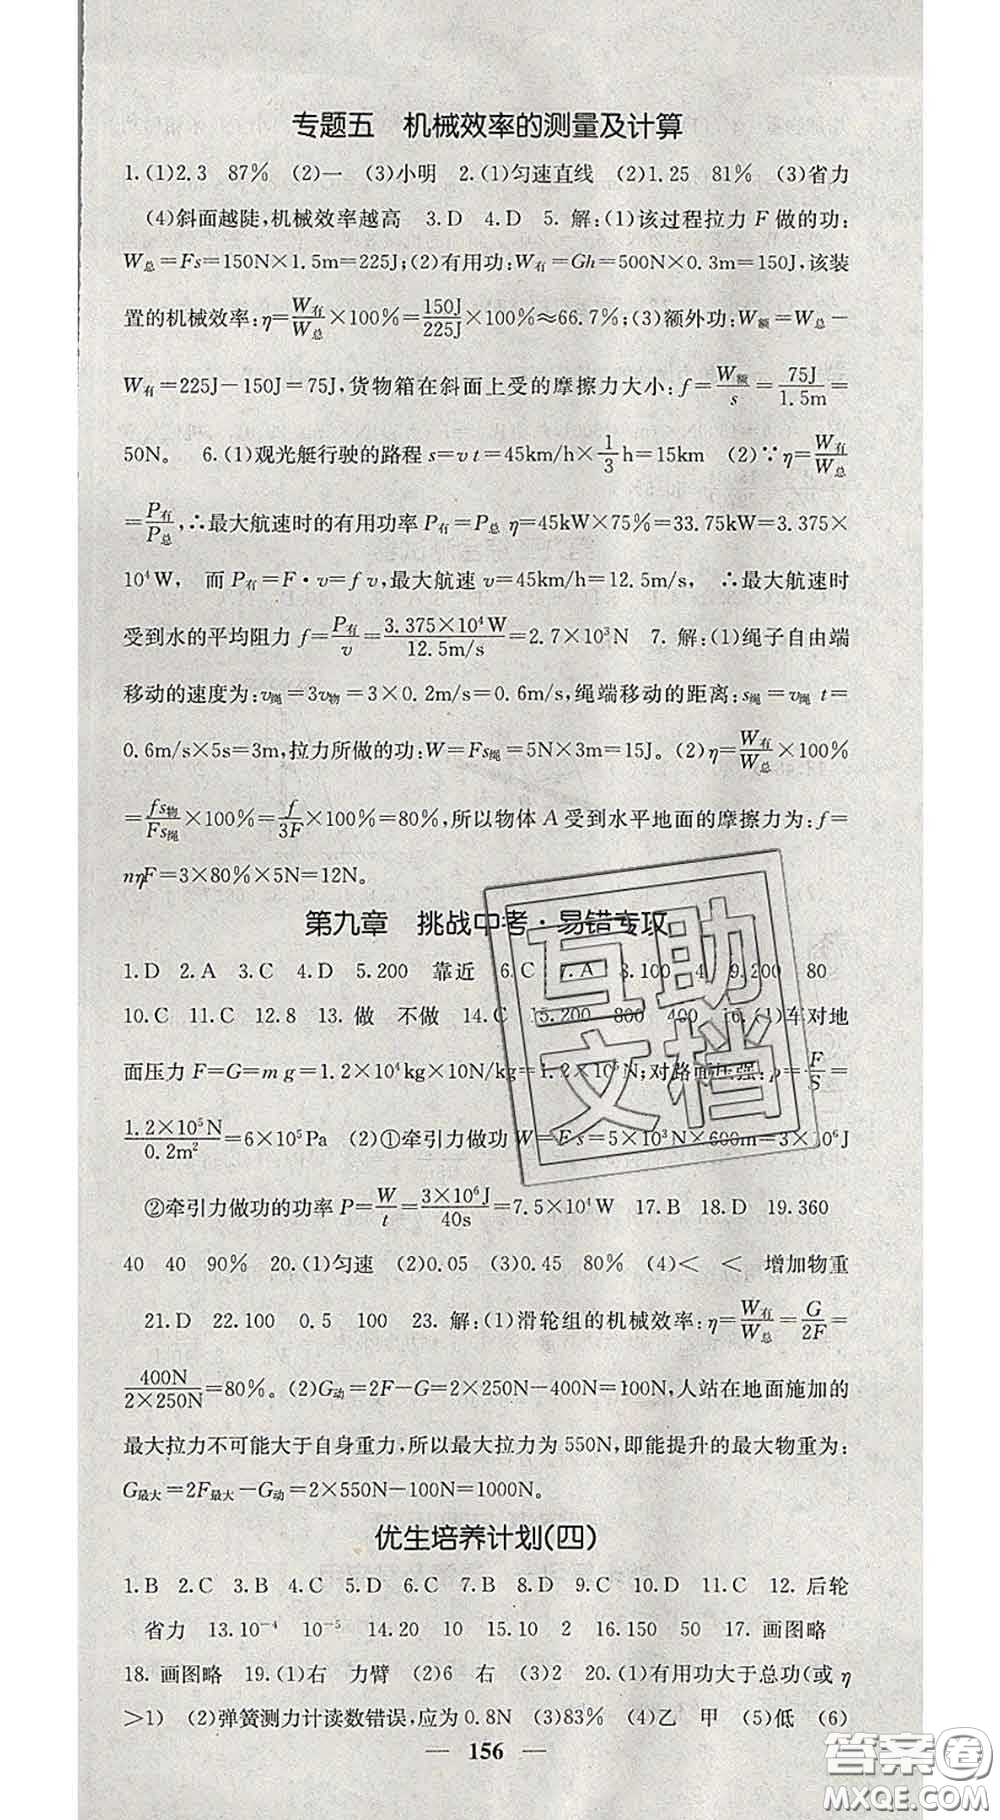 专题五　机械效率的测量及计算
1.(1)2.3　87%　(2)一　(3)小明　2.(1)匀速直线　(2)1.25　81%　(3)省力
(4)斜面越陡,机械效率越高　3.D　4.D　5.解:(1)该过程拉力 F 做的功:
W总=Fs=150N×1.5m=225J;(2)有用功:W有=Gh=500N×0.3m=150J,该装
置的机械效率:η=W有/W总×100%=150J/225J×100%≈66.7%;(3)额外功:W额=W总-
W有=225J-150J=75J,货物箱在斜面上受的摩擦力大小:f=W额/s=75J/1.5m=
50N。　6.(1)观光艇行驶的路程 s=vt=45km/h×1/3h=15km　(2)∵η=W有/W总
=P有/P总,∴最大航速时的有用功率 P有=P总η=45kW×75%=33.75kW=3.375×
10⁴W,　而 P有=F·v=fv,最大航速 v=45km/h=12.5m/s,　∴最大航速时
受到水的平均阻力 f=P有/v=3.375×10⁴W/12.5m/s=2.7×10³N　7.解:(1)绳子自由端
移动的速度为:v绳=3v物=3×0.2m/s=0.6m/s,绳端移动的距离:s绳=v绳 t=
0.6m/s×5s=3m,拉力所做的功:W=Fs绳=5N×3m=15J。(2)η=W有/W总×100%
=fs物/Fs绳×100%=f/3F×100%=80%,所以物体 A 受到水平地面的摩擦力为:f=
nηF=3×80%×5N=12N。
第九章　挑战中考·易错专攻
1.D　2.A　3.C　4.D　5.200　靠近　6.C　7.A　8.100　4　9.200　80
10.C　11.C　12.8　13.做　不做　14.C　15.200　800　400　16.(1)车对地
面压力 F=G=mg=1.2×10⁴kg×10N/kg=1.2×10⁵N;对路面压强:p=F/S=
1.2×10⁵N/0.2m²=6×10⁵Pa　(2)①牵引力做功 W=Fs=5×10³N×600m=3×10⁶J
②牵引力做功的功率 P=W/t=3×10⁶J/40s=7.5×10⁴W　17.B　18.D　19.360
40　40　90%　20.(1)匀速　(2)0.05　(3)0.45　80%　(4)<　<　增加物重
21.D　22.100　0.5　100　23.解:(1)滑轮组的机械效率:η=W有/W总=G/2F=
400N/2×250N=80%。(2)G动=2F-G=2×250N-400N=100N,人站在地面施加的
最大拉力不可能大于自身重力,所以最大拉力为 550N,即能提升的最大物重为:
G最大=2F最大-G动=2×550N-100N=1000N。
优生培养计划(四)
1.B　2.C　3.B　4.C　5.D　6.C　7.C　8.B　9.C　10.D　11.C　12.后轮
省力　13.10⁻⁴　10⁻⁵　14.20　10　15.10　2　16.150　50　17.画图略
18.画图略　19.(1)右　力臂　(2)6　右　(3)2　20.(1)有用功大于总功(或 η
>1)　(2)弹簧测力计读数错误,应为 0.8N　(3)83%　(4)乙　甲　(5)低　(6)
156
互助
文档
答案圈
MXQE.COM